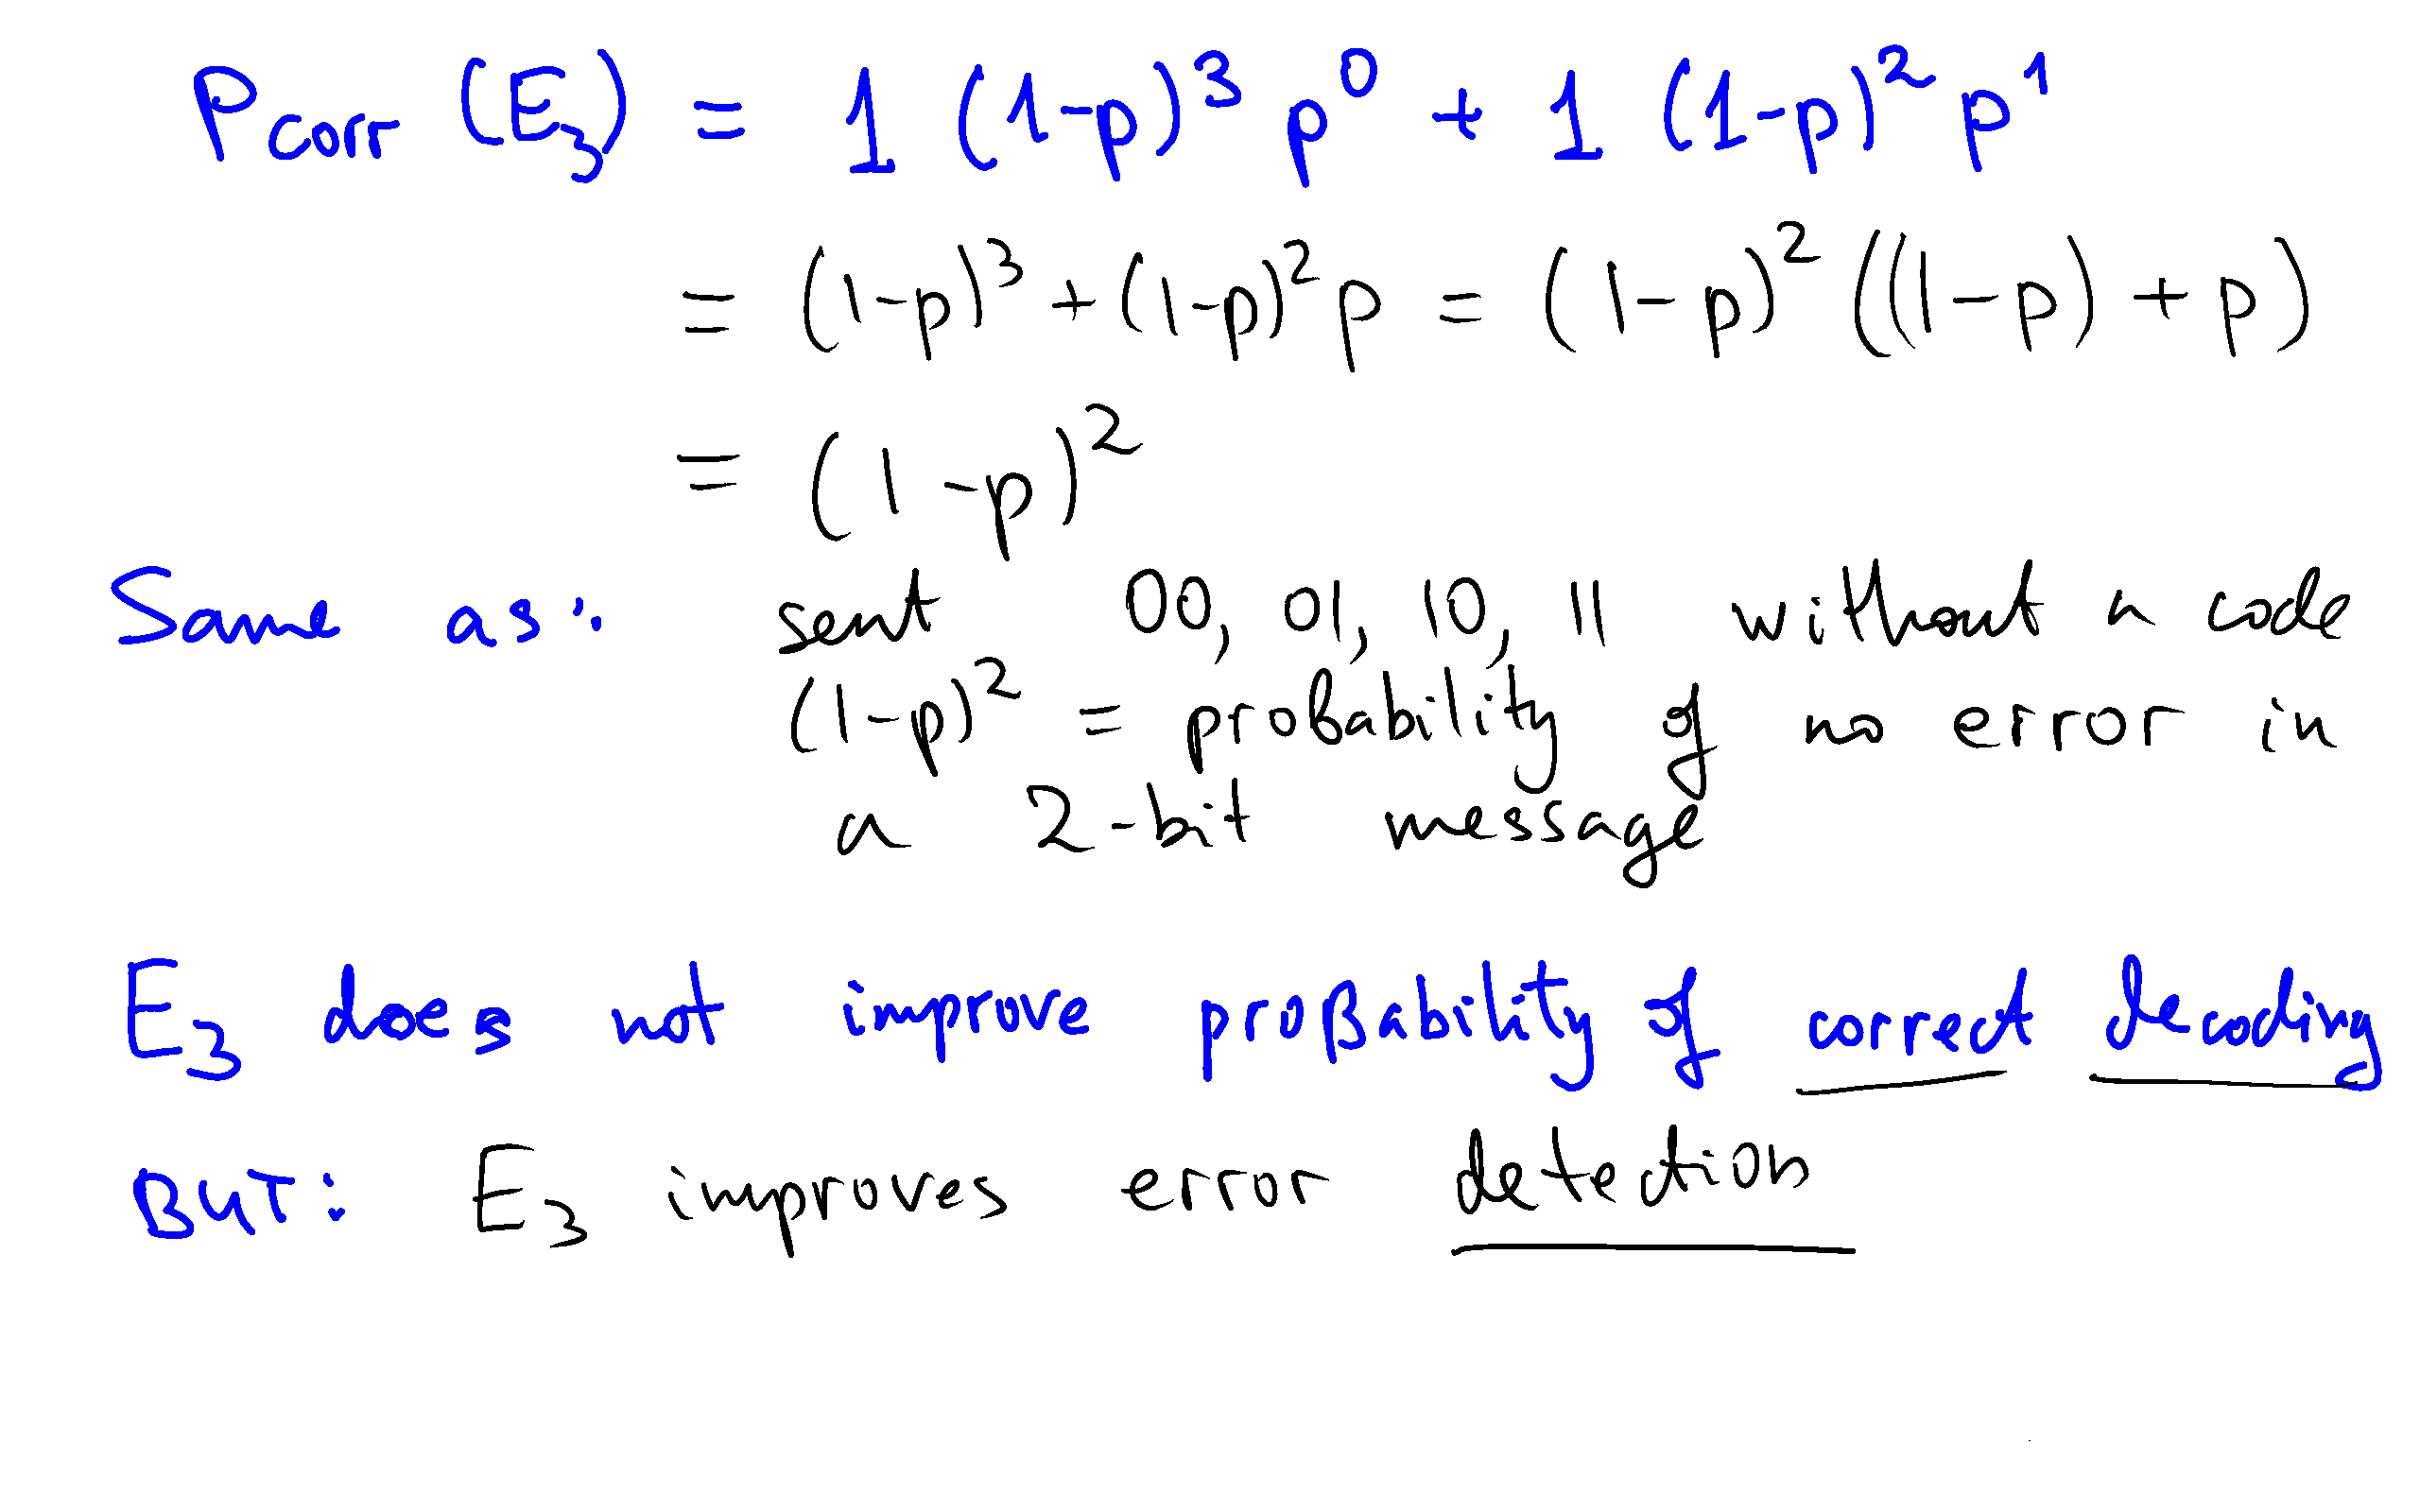 P_corr (E_3) = 1 (1-p)^3 p^0 + 1 (1-p)^2 p^1
= (1-p)^3 + (1-p)^2 p = (1-p)^2 ((1-p) + p)
= (1-p)^2
Same as: sent 00, 01, 10, 11 without a code
(1-p)^2 = probability of no error in
a 2-bit message
E_3 does not improve probability of correct decoding
BUT: E_3 improves error detection